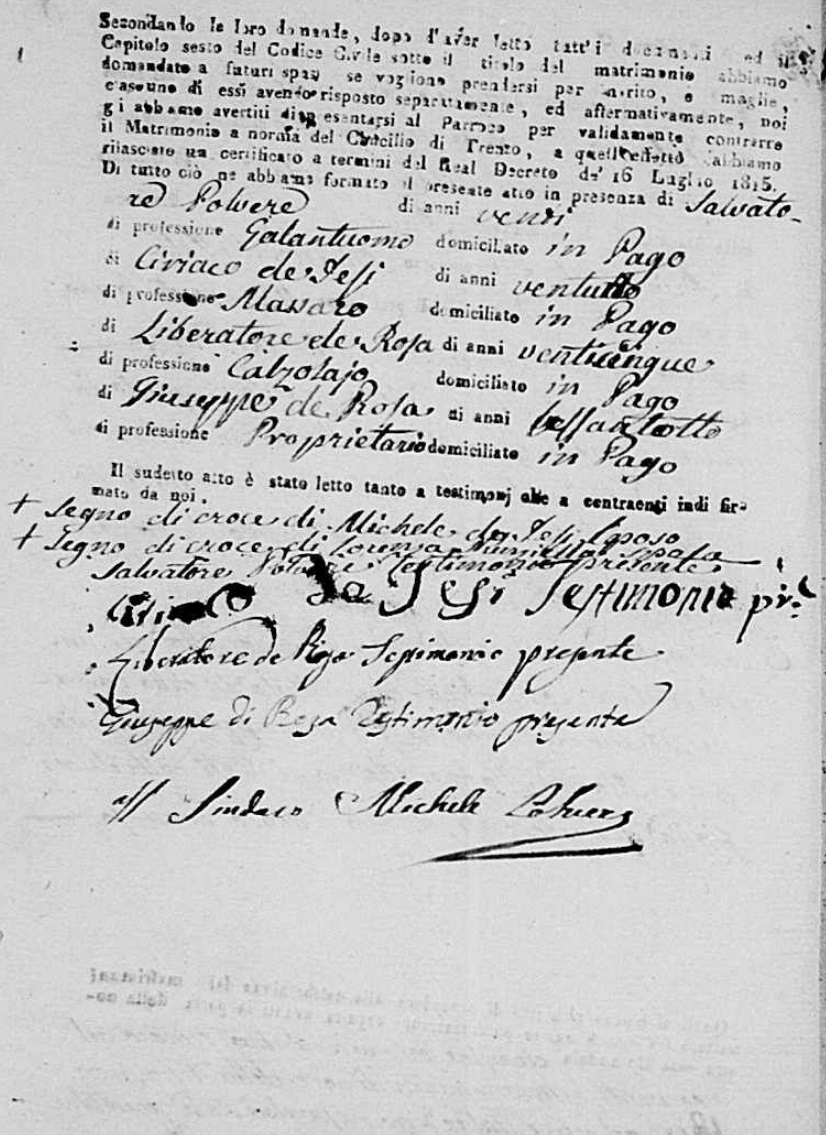 Secondando le loro domande, dopo d'aver letto tutt'i documenti ed il
Capitolo sesto del Codice Civile sotto il titolo del matrimonio abbiamo
domandato a futuri sposi se vogliono prendersi per marito, e moglie,
ciascuno di essi avendo risposto separatamente, ed affermativamente, noi
gi abbamo avertiti di presentarsi al Parroco per validamente contrarre
il Matrimonio a norma del Concilio di Trento, a quell'effetto abbiamo
rilasciato un certificato a termini del Real Decreto de' 16 Luglio 1815.
Di tutto ciò ne abbiamo formato il presente atto in presenza di Salvato-
re Polvere di anni venti
di professione Galantuomo domiciliato in Pago
di Ciriaco de Jesi di anni ventutto
di professione Massaro domiciliato in Pago
di Liberatore de Rosa di anni venticinque
di professione Calzolajo domiciliato in Pago
di Giuseppe de Rosa di anni
di professione Proprietario domiciliato in Pago
Il sudetto atto è stato letto tanto a testimonj che a contraenti indi fir-
mato da noi.
+ Segno di croce di Michele de Jesi sposo
+ Segno di croce di Lorenza sposa
Salvatore Polvere testimonio presente
de Jesi Testimonio
Liberatore de Testimonio presente
Giuseppe di Roza Testimonio presente
Sindaco Michele Polvere